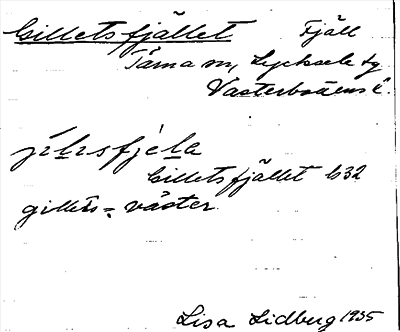 Gilletsfjället Fjäll
Tärna sn, Lycksele lg
Västerbottens l.
jílısfjela
Gilletsfjället b32
gillets = väster.
Lisa Lidberg 1935